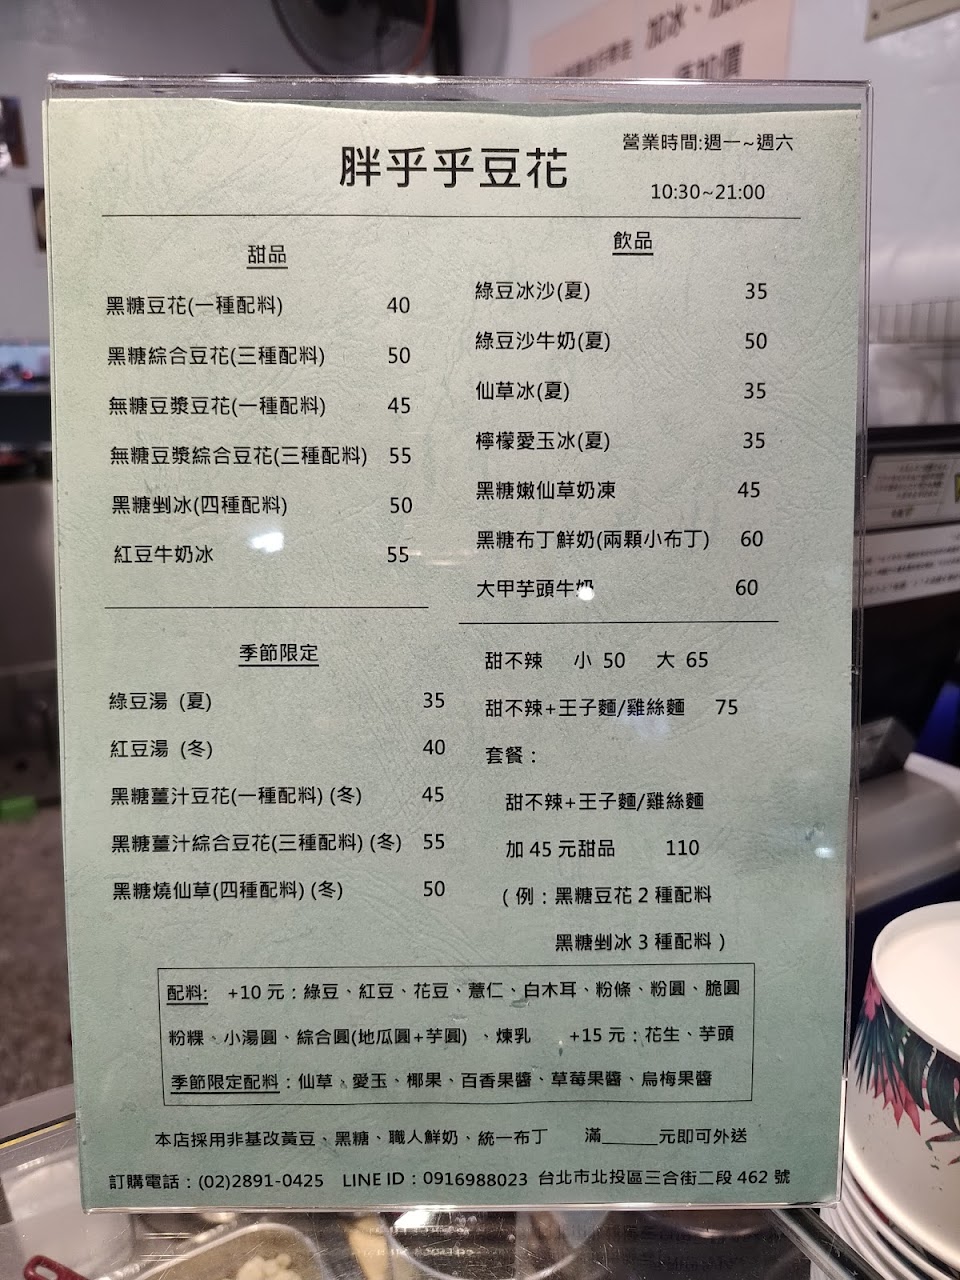 加冰、加
加價
胖乎乎豆花
營業時間:週一~週六
10:30~21:00
甜品
黑糖豆花(一種配料) 40
黑糖綜合豆花(三種配料) 50
無糖豆漿豆花(一種配料) 45
無糖豆漿綜合豆花(三種配料) 55
黑糖剉冰(四種配料) 50
紅豆牛奶冰 55
季節限定
綠豆湯 (夏) 35
紅豆湯 (冬) 40
黑糖薑汁豆花(一種配料) (冬) 45
黑糖薑汁綜合豆花(三種配料) (冬) 55
黑糖燒仙草(四種配料) (冬) 50
飲品
綠豆冰沙(夏) 35
綠豆沙牛奶(夏) 50
仙草冰(夏) 35
檸檬愛玉冰(夏) 35
黑糖嫩仙草奶凍 45
黑糖布丁鮮奶(兩顆小布丁) 60
大甲芋頭牛奶 60
甜不辣 小 50 大 65
甜不辣+王子麵/雞絲麵 75
套餐：
甜不辣+王子麵/雞絲麵
加 45 元甜品 110
(例：黑糖豆花 2 種配料
黑糖剉冰 3 種配料)
配料: +10 元：綠豆、紅豆、花豆、薏仁、白木耳、粉條、粉圓、脆圓
粉粿、小湯圓、綜合圓(地瓜圓+芋圓) 、煉乳 +15 元：花生、芋頭
季節限定配料：仙草、愛玉、椰果、百香果醬、草莓果醬、烏梅果醬
本店採用非基改黃豆、黑糖、職人鮮奶、統一布丁 滿______元即可外送
訂購電話：(02)2891-0425 LINE ID：0916988023 台北市北投區三合街二段 462 號